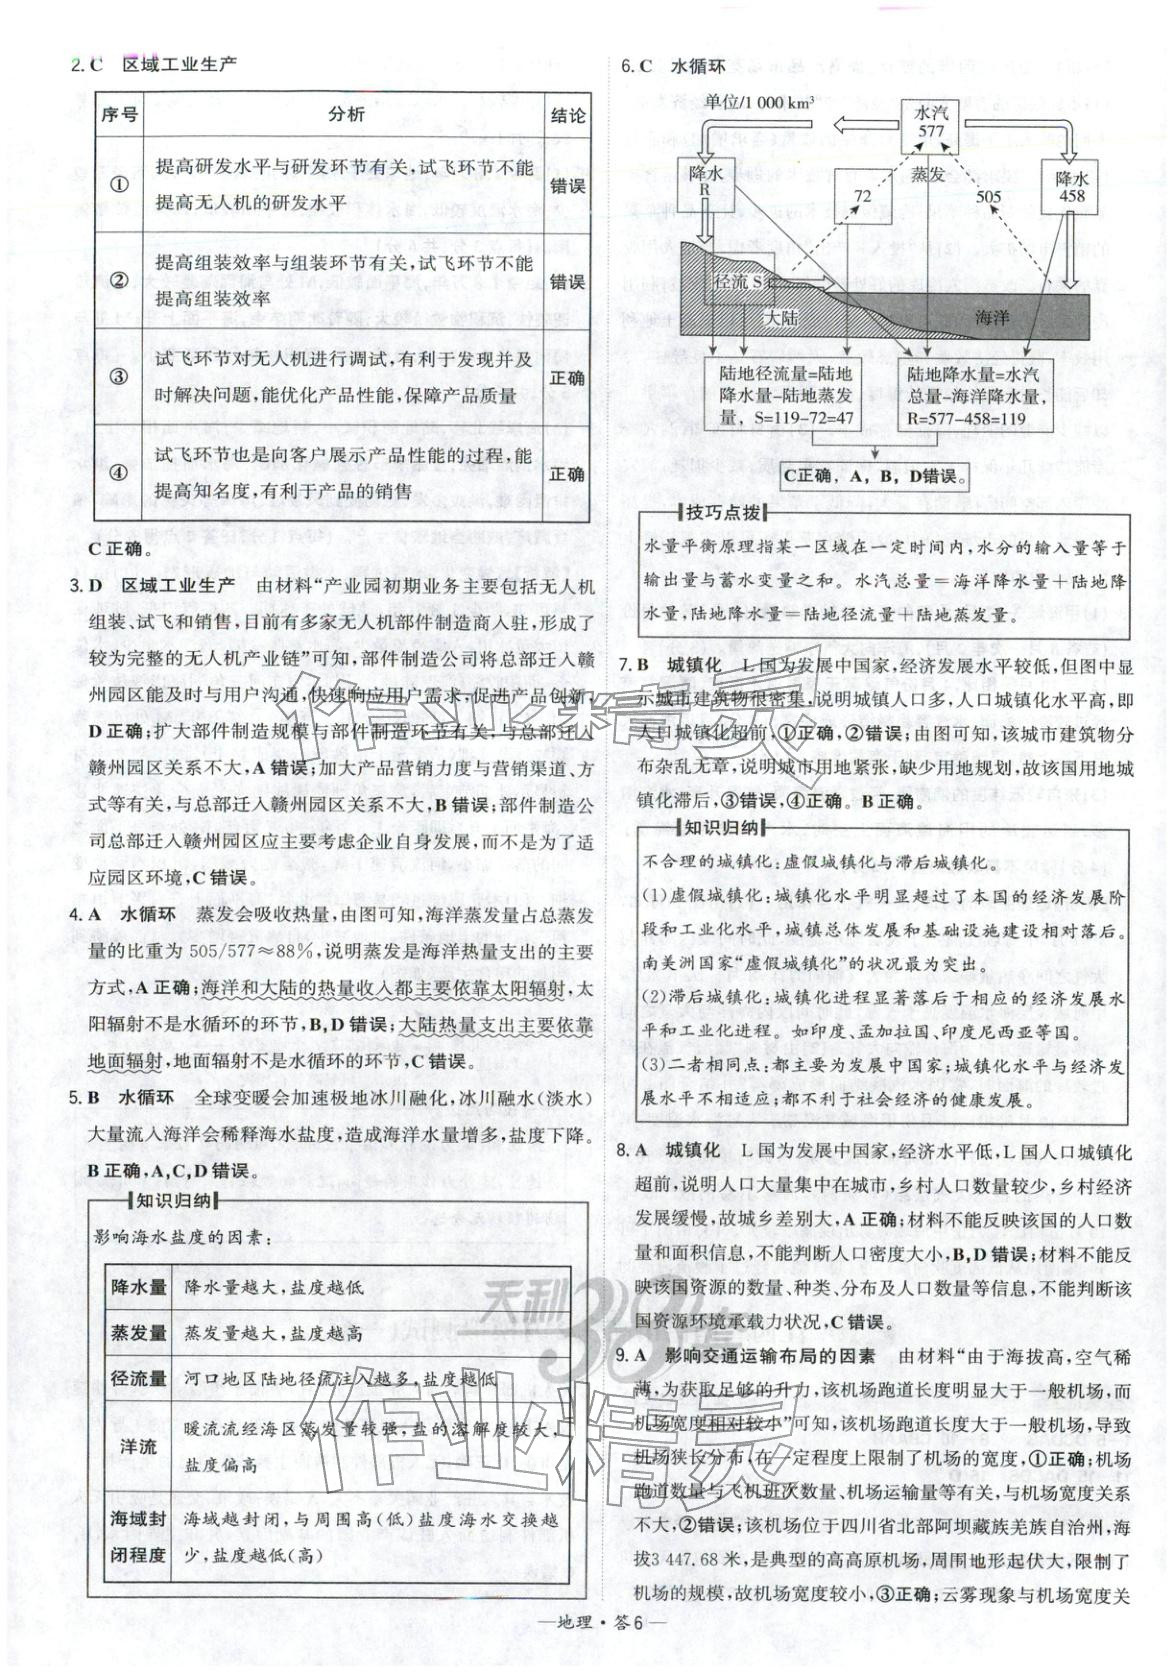 2. C 区域工业生产
序号 分析 结论
① 提高研发水平与研发环节有关,试飞环节不能
提高无人机的研发水平 错误
② 提高组装效率与组装环节有关,试飞环节不能
提高组装效率 错误
③ 试飞环节对无人机进行调试,有利于发现并及
时解决问题,能优化产品性能,保障产品质量 正确
④ 试飞环节也是向客户展示产品性能的过程,能
提高知名度,有利于产品的销售 正确
C正确。
3. D 区域工业生产 由材料“产业园初期业务主要包括无人机
组装、试飞和销售,目前有多家无人机部件制造商入驻,形成了
较为完整的无人机产业链”可知,部件制造公司将总部迁入赣
州园区能及时与用户沟通,快速响应用户需求,促进产品创新,
D正确;扩大部件制造规模与部件制造环节有关,与总部迁入
赣州园区关系不大,A错误;加大产品营销力度与营销渠道、方
式等有关,与总部迁入赣州园区关系不大,B错误;部件制造公
司总部迁入赣州园区应主要考虑企业自身发展,而不是为了适
应园区环境,C错误。
4. A 水循环 蒸发会吸收热量,由图可知,海洋蒸发量占总蒸发
量的比重为 505/577≈88%,说明蒸发是海洋热量支出的主要
方式,A正确;海洋和大陆的热量收入都主要依靠太阳辐射,太
阳辐射不是水循环的环节,B,D错误;大陆热量支出主要依靠
地面辐射,地面辐射不是水循环的环节,C错误。
5. B 水循环 全球变暖会加速极地冰川融化,冰川融水(淡水)
大量流入海洋会稀释海水盐度,造成海洋水量增多,盐度下降。
B正确,A,C,D错误。
知识归纳
影响海水盐度的因素:
降水量 降水量越大,盐度越低
蒸发量 蒸发量越大,盐度越高
径流量 河口地区陆地径流注入越多,盐度越低
洋流 暖流流经海区蒸发量较强,盐的溶解度较大,
盐度偏高
海域封 海域越封闭,与周围高(低)盐度海水交换越
闭程度 少,盐度越低(高)
6. C 水循环
单位/1 000 km³
水汽
577
降水
R
72
蒸发
505
降水
458
径流 S
大陆
海洋
陆地径流量=陆地
降水量-陆地蒸发
量, S=119-72=47
陆地降水量=水汽
总量-海洋降水量,
R=577-458=119
C正确, A, B, D错误。
技巧点拨
水量平衡原理指某一区域在一定时间内,水分的输入量等于
输出量与蓄水变量之和。水汽总量=海洋降水量+陆地降
水量,陆地降水量=陆地径流量+陆地蒸发量。
7. B 城镇化 L国为发展中国家,经济发展水平较低,但图中显
示城市建筑物很密集,说明城镇人口多,人口城镇化水平高,即
人口城镇化超前,①正确,②错误;由图可知,该城市建筑物分
布杂乱无章,说明城市用地紧张,缺少用地规划,故该国用地城
镇化滞后,③错误,④正确。B正确。
知识归纳
不合理的城镇化:虚假城镇化与滞后城镇化。
(1)虚假城镇化:城镇化水平明显超过了本国的经济发展阶
段和工业化水平,城镇总体发展和基础设施建设相对落后。
南美洲国家“虚假城镇化”的状况最为突出。
(2)滞后城镇化:城镇化进程显著落后于相应的经济发展水
平和工业化进程。如印度、孟加拉国、印度尼西亚等国。
(3)二者相同点:都主要为发展中国家;城镇化水平与经济发
展水平不相适应;都不利于社会经济的健康发展。
8. A 城镇化 L国为发展中国家,经济水平低,L国人口城镇化
超前,说明人口大量集中在城市,乡村人口数量较少,乡村经济
发展缓慢,故城乡差别大,A正确;材料不能反映该国的人口数
量和面积信息,不能判断人口密度大小,B,D错误;材料不能反
映该国资源的数量、种类、分布及人口数量等信息,不能判断该
国资源环境承载力状况,C错误。
9. A 影响交通运输布局的因素 由材料“由于海拔高,空气稀
薄,为获取足够的升力,该机场跑道长度明显大于一般机场,而
机场宽度相对较小”可知,该机场跑道长度大于一般机场,导致
机场狭长分布,在一定程度上限制了机场的宽度,①正确;机场
跑道数量与飞机班次数量、机场运输量等有关,与机场宽度关系
不大,②错误;该机场位于四川省北部阿坝藏族羌族自治州,海
拔3 447.68 米,是典型的高高原机场,周围地形起伏大,限制了
机场的规模,故机场宽度较小,③正确;云雾现象与机场宽度关
作业精灵
天利38套
作业精灵
—地理·答6—